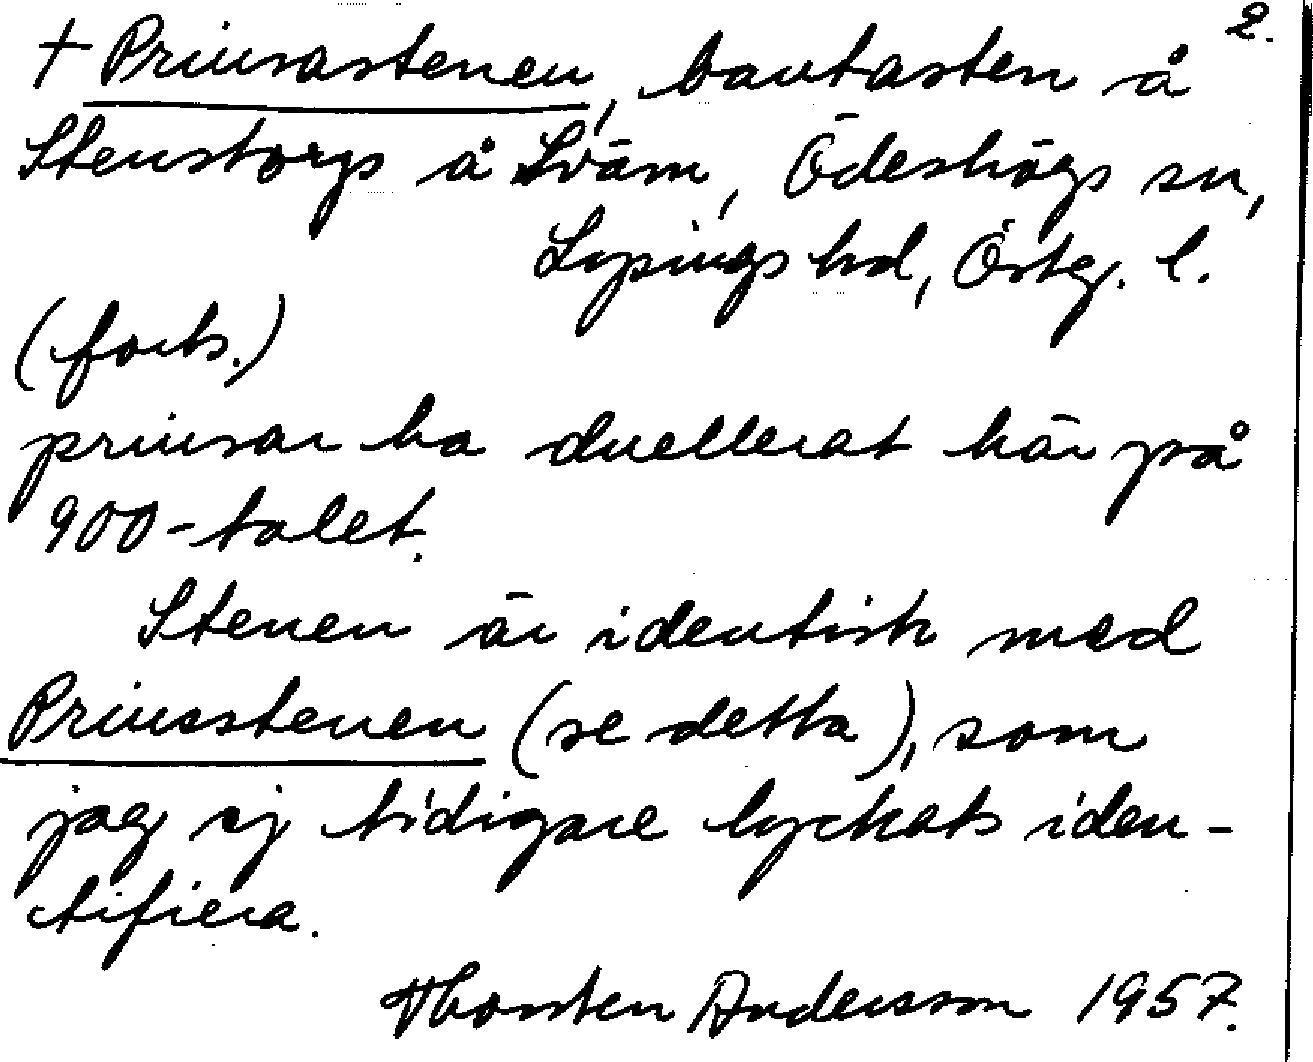 2.
† Prinsastenen, bautasten å
Stenstorps å Sväm, Ödeshögs sn,
Lysings hd, Östg. l.
(forts.)
prinsar ha duellerat här på
900-talet.
Stenen är identisk med
Prinsstenen (se detta), som
jag ej tidigare lyckats iden-
tifiera.
Thorsten Andersson 1957.